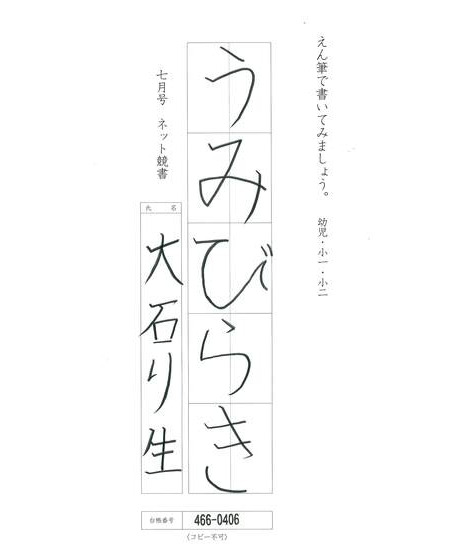 えん筆で書いてみましょう。 幼児・小一・小二
うみびらき
七月号 ネット競書
氏名
大石り生
台帳番号 466-0406
〈コピー不可〉